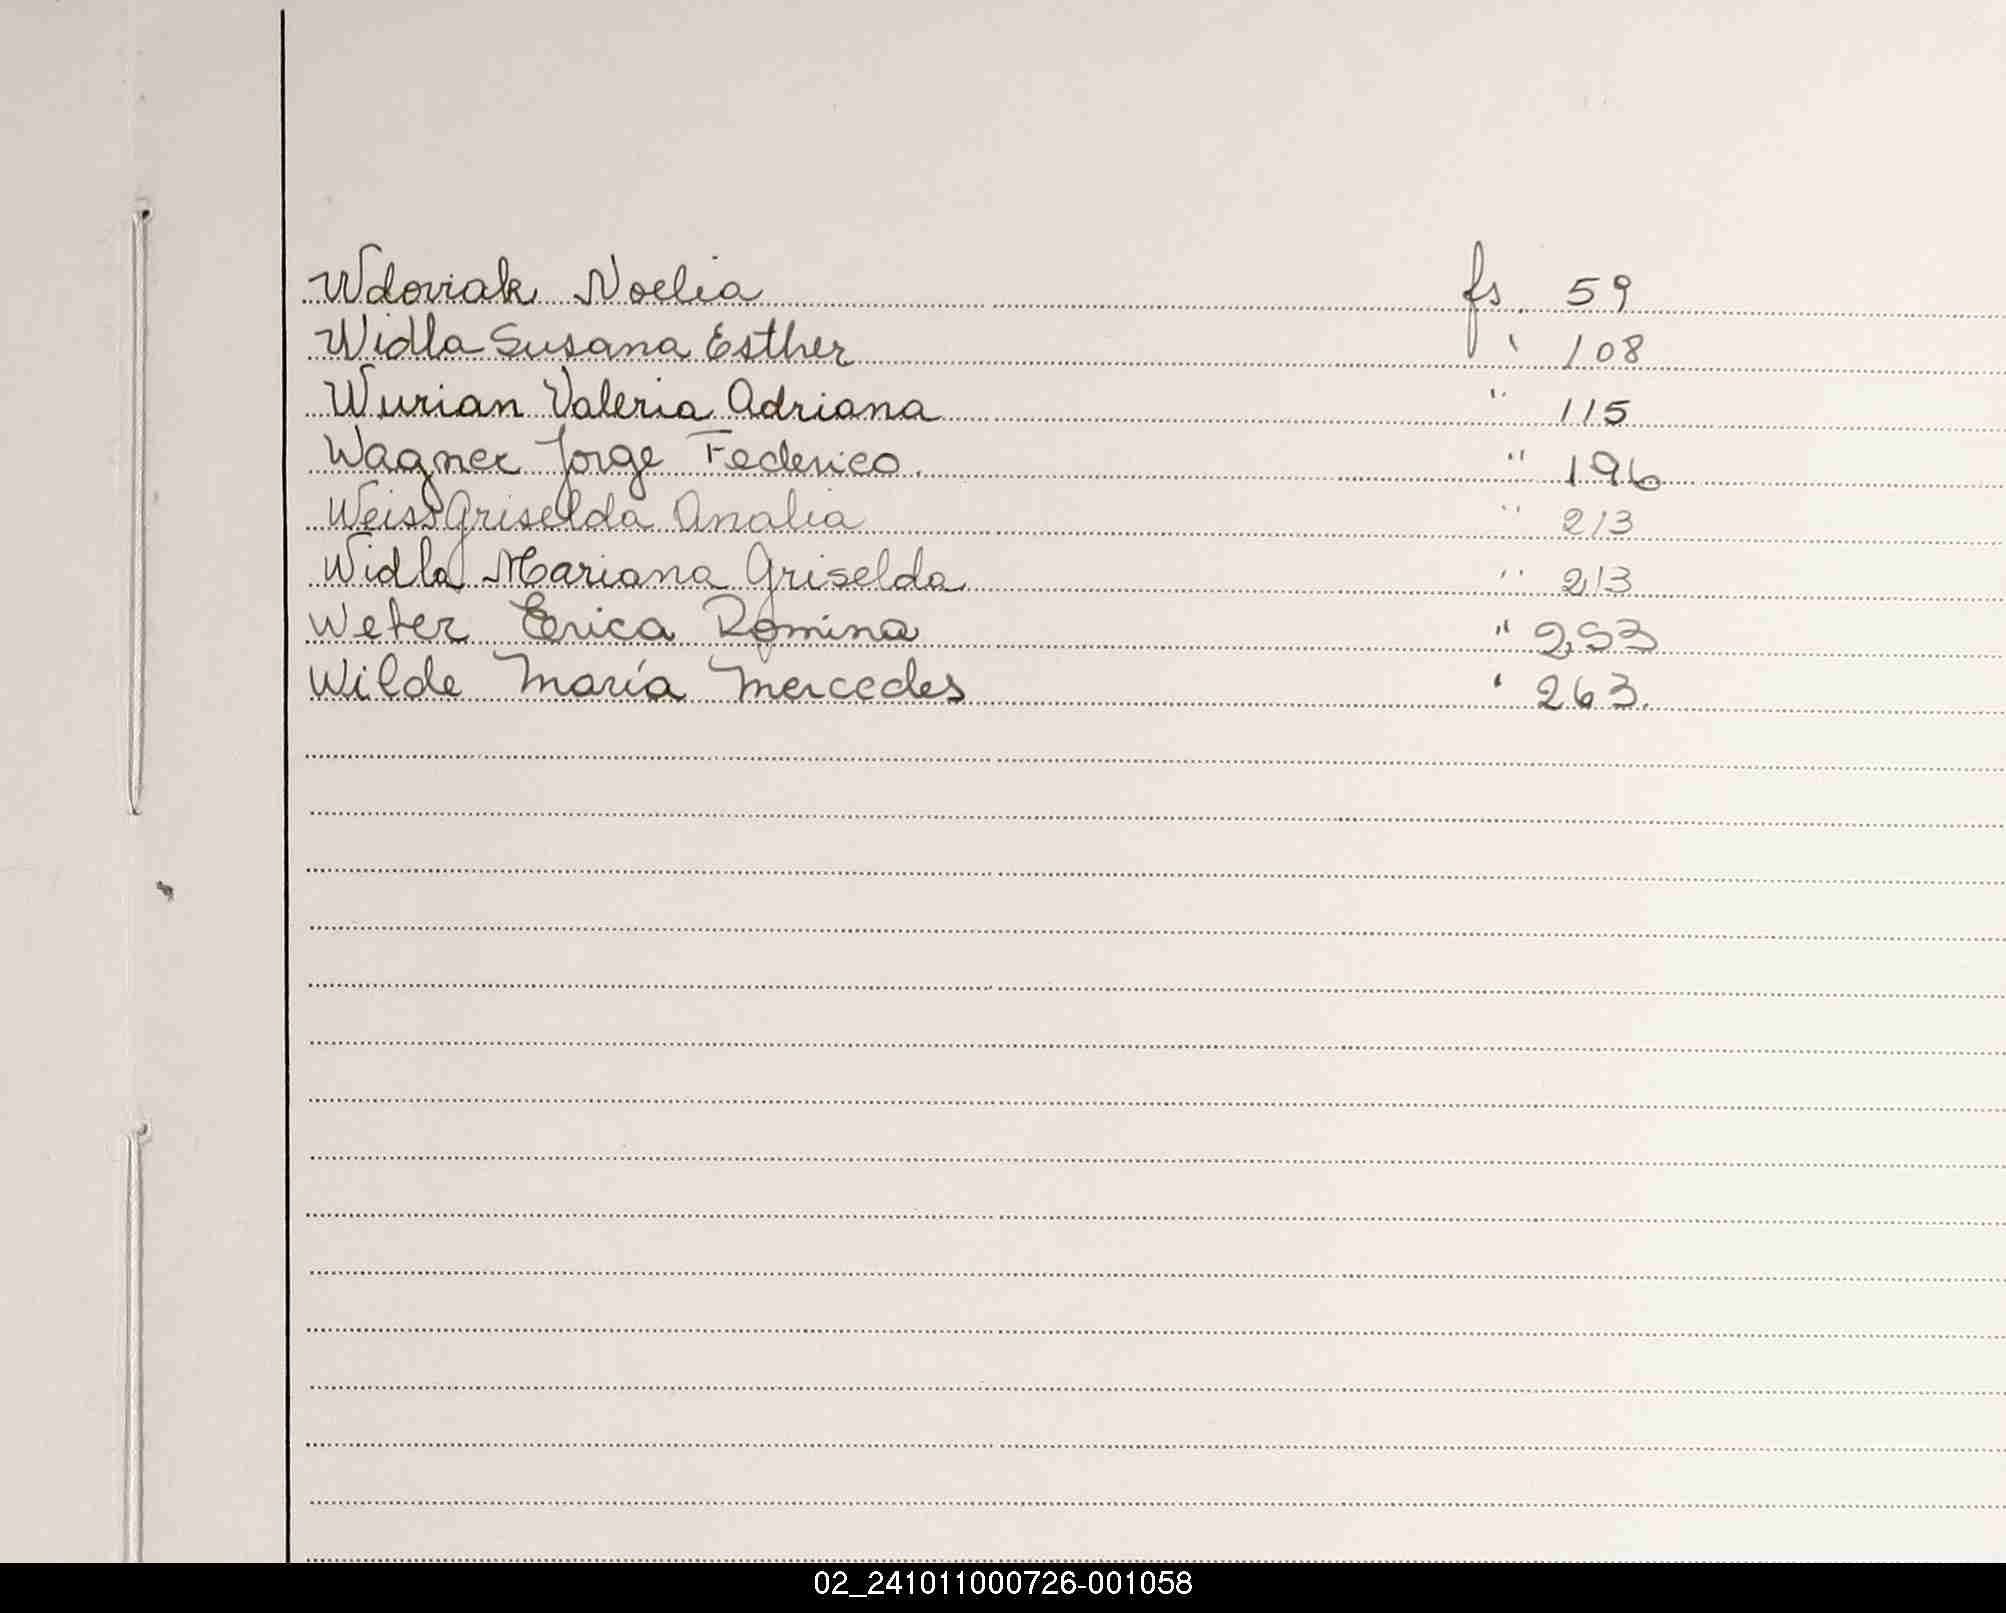 Wdoviak Noelia fs. 59
Widla Susana Esther " 108
Wurian Valeria Adriana " 115
Wagner Jorge Federico. " 196
Weiss Griselda Analia " 213
Widla Mariana Griselda " 213
Weter Erica Romina " 253
Wilde María Mercedes " 263.
02_241011000726-001058